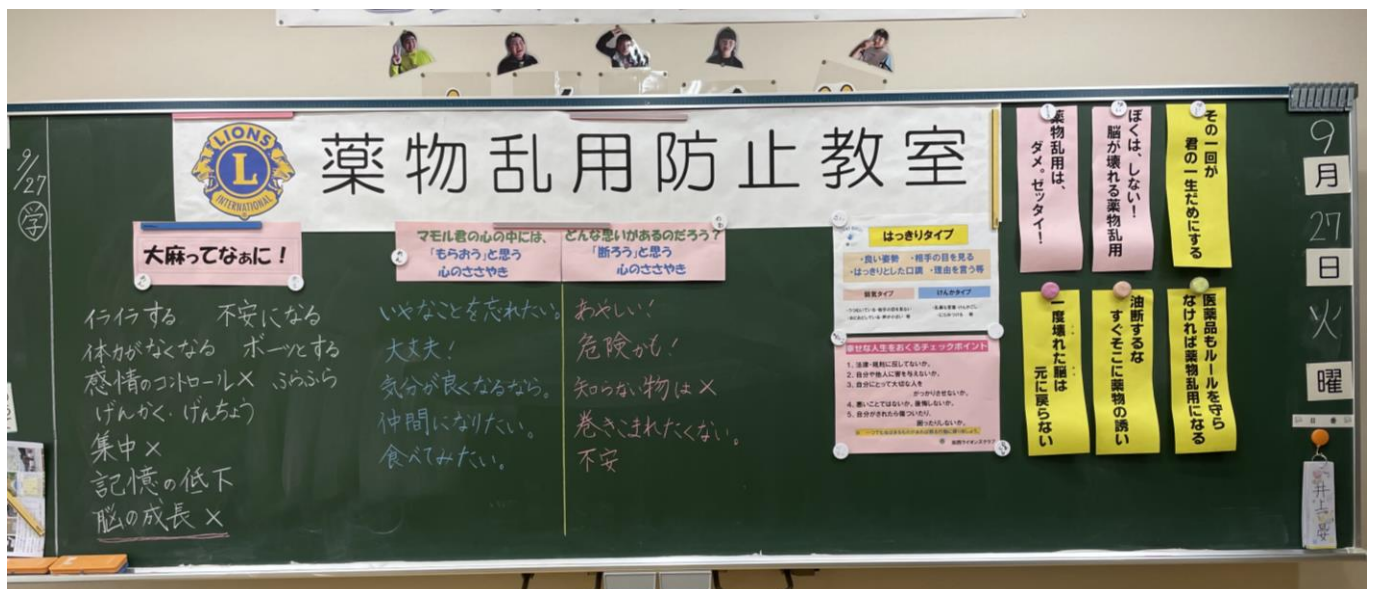 9/27
学
LIONS
L
INTERNATIONAL
薬物乱用防止教室
大麻ってなぁに！
イライラする 不安になる
体力がなくなる ボーッとする
感情のコントロール× ふらふら
げんかく・げんちょう
集中×
記憶の低下
脳の成長×
マモル君の心の中には、どんな思いがあるのだろう？
「もらおう」と思う
心のささやき
いやなことを忘れたい。
大丈夫！
気分が良くなるなら。
仲間になりたい。
食べてみたい。
「断ろう」と思う
心のささやき
あやしい！
危険かも！
知らない物は×
巻きこまれたくない。
不安
はっきりタイプ
・良い姿勢 ・相手の目を見る
・はっきりとした口調 ・理由を言う等
弱気タイプ
けんかタイプ
幸せな人生をおくるチェックポイント
1. 法律・規則に反してないか。
2. 自分や他人に害を与えないか。
3. 自分にとって大切な人を
がっかりさせないか。
4. 悪いことではないか。後悔しないか。
5. 自分がされたら傷ついたり、
困ったりしないか。
薬物乱用は、
ダメ。ゼッタイ！
ぼくは、しない！
脳が壊れる薬物乱用
その一回が
君の一生だめにする
一度壊れた脳は
元に戻らない
油断するな
すぐそこに薬物の誘い
医薬品もルールを守ら
なければ薬物乱用になる
9
月
27
日
火
曜
日番